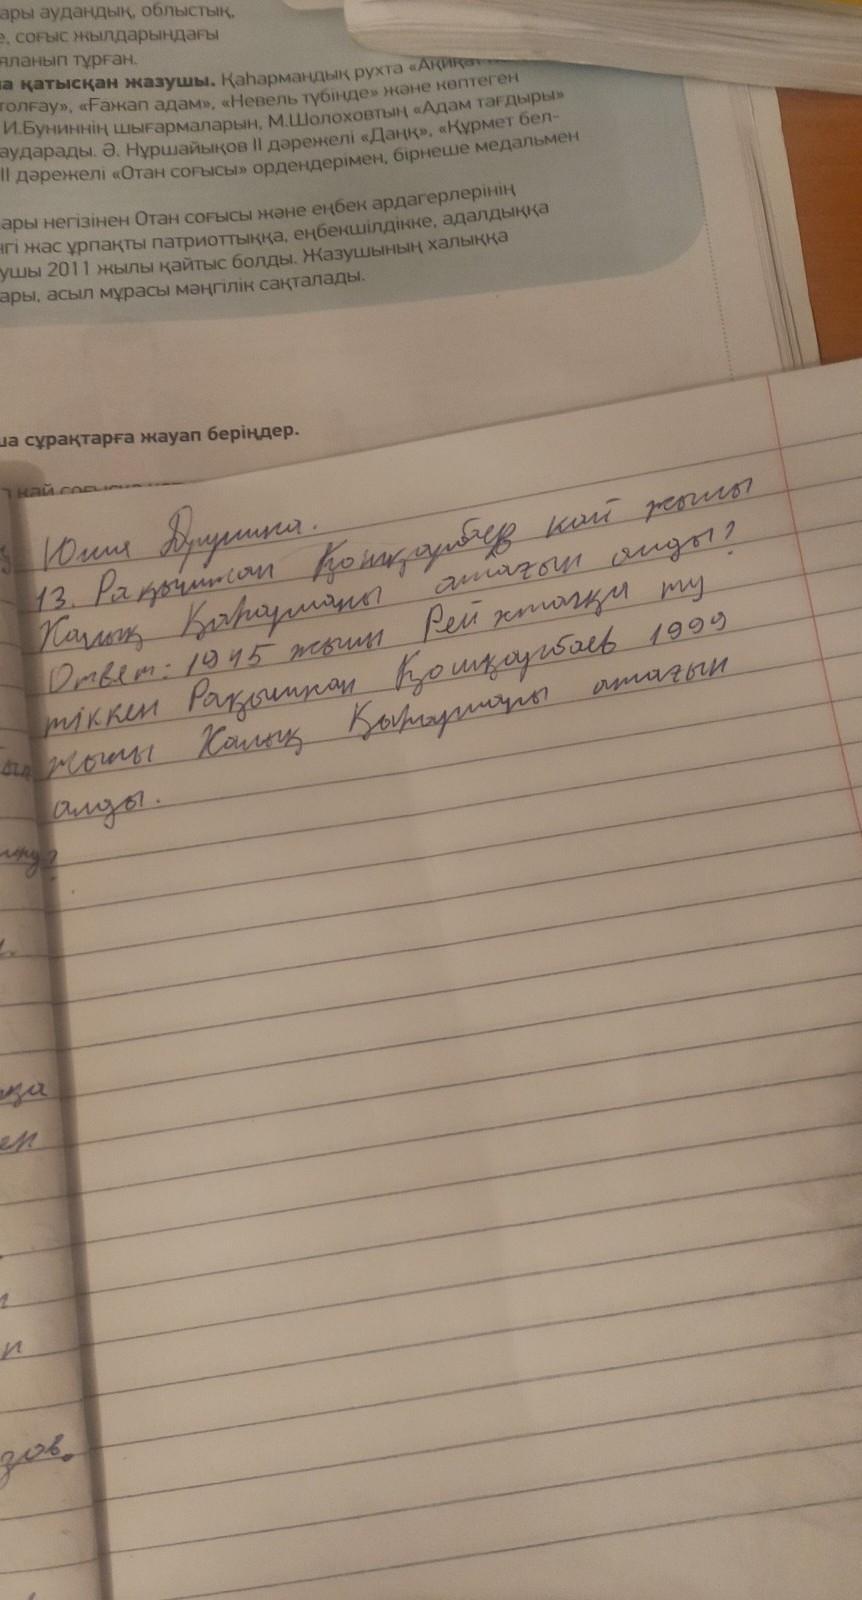 ары аудандық, облыстық,
е, соғыс жылдарындағы
яланып тұрған.
а қатысқан жазушы. Қаһармандық рухта «Ақиқат
толғау», «Ғажап адам», «Невель түбінде» және көптеген
И.Буниннің шығармаларын, М.Шолоховтың «Адам тағдыры»
аударады. Ә. Нұршайықов ІІ дәрежелі «Даңқ», «Құрмет бел-
ІІ дәрежелі «Отан соғысы» ордендерімен, бірнеше медальмен
ары негізінен Отан соғысы және еңбек ардагерлерінің
нгі жас ұрпақты патриоттыққа, еңбекшілдікке, адалдыққа
ушы 2011 жылы қайтыс болды. Жазушының халыққа
ары, асыл мұрасы мәңгілік сақталады.
ша сұрақтарға жауап беріңдер.
қай соғысқа
Юлия Друнина.
13. Рақымжан Қошқарбаев қай жылы
Халық Қаһарманы атағын алды?
Ответ: 1945 жылы Рейхтагқа ту
тіккен Рақымжан Қошқарбаев 1999
жылы Халық Қаһарманы атағын
алды.
қа
ен
п
зов.